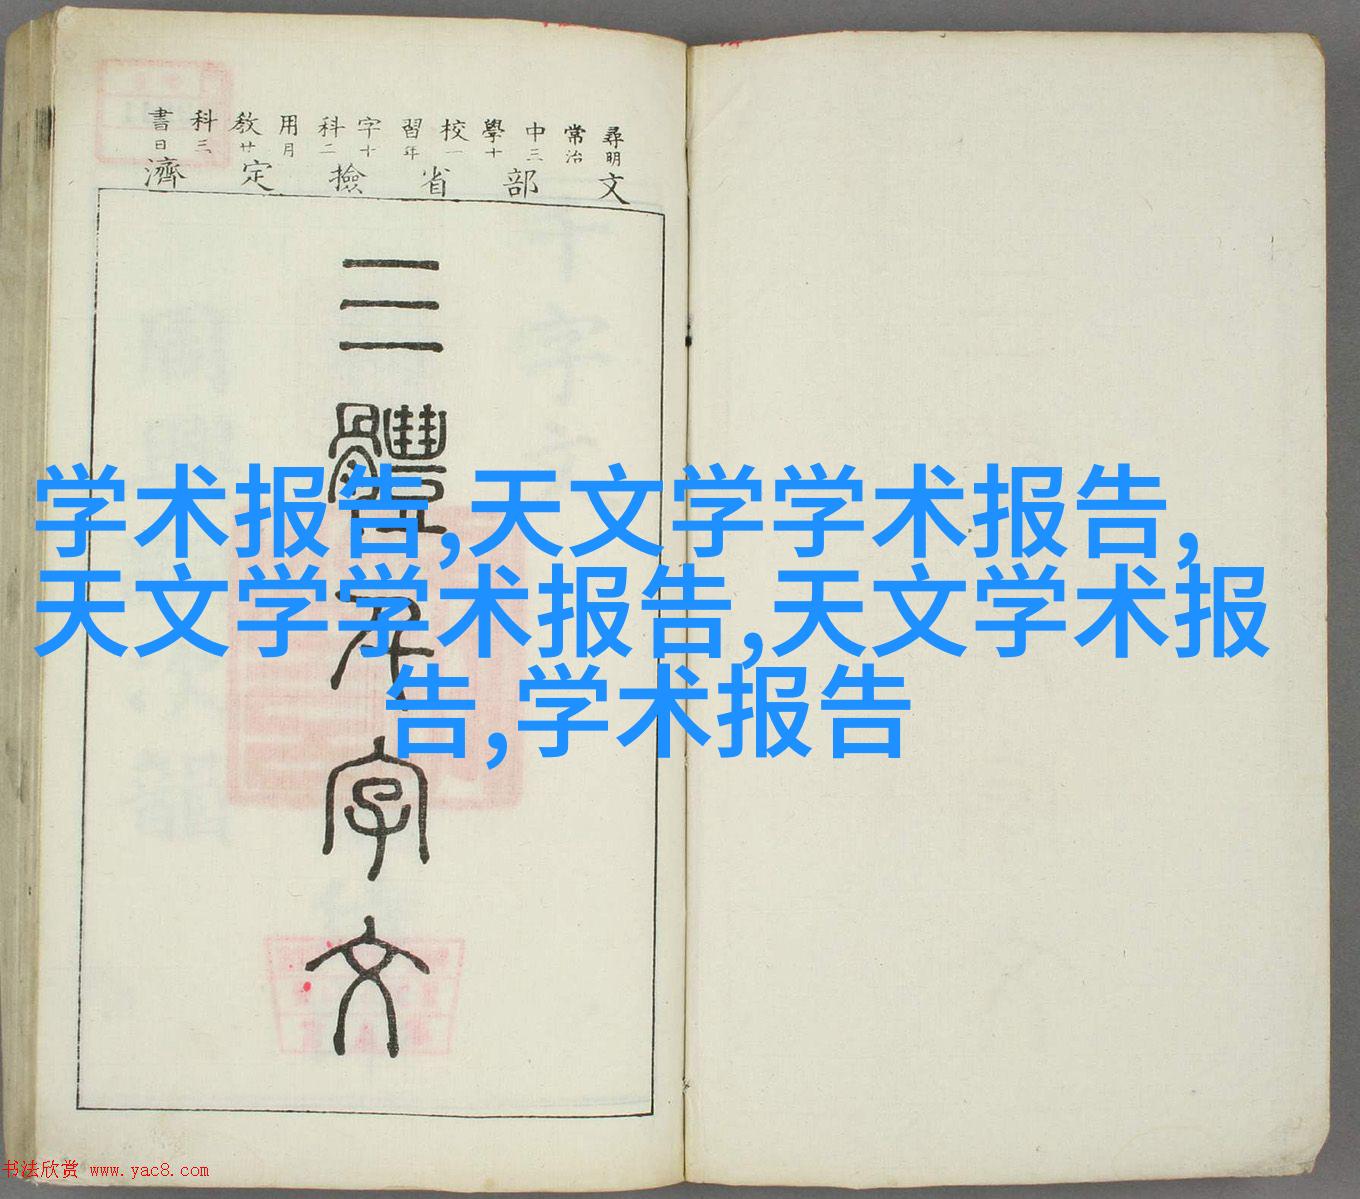 尋常中學校習字科用教科書
明治三十一年十二月廿三日
文部省撿定濟
三體千字文
学术报告,天文学学术报告,
天文学学术报告,天文学术报
告,学术报告
书法欣赏 www.yac8.com